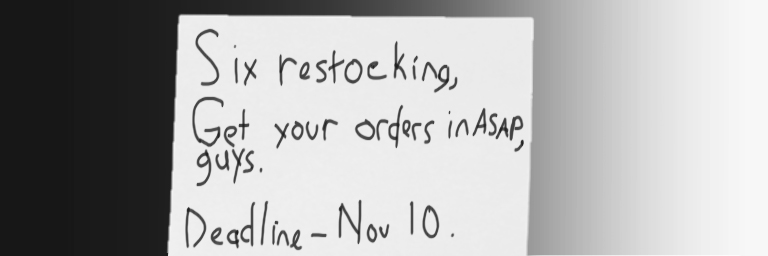 Six restocking,
Get your orders in ASAP,
guys.
Deadline - Nov 10.